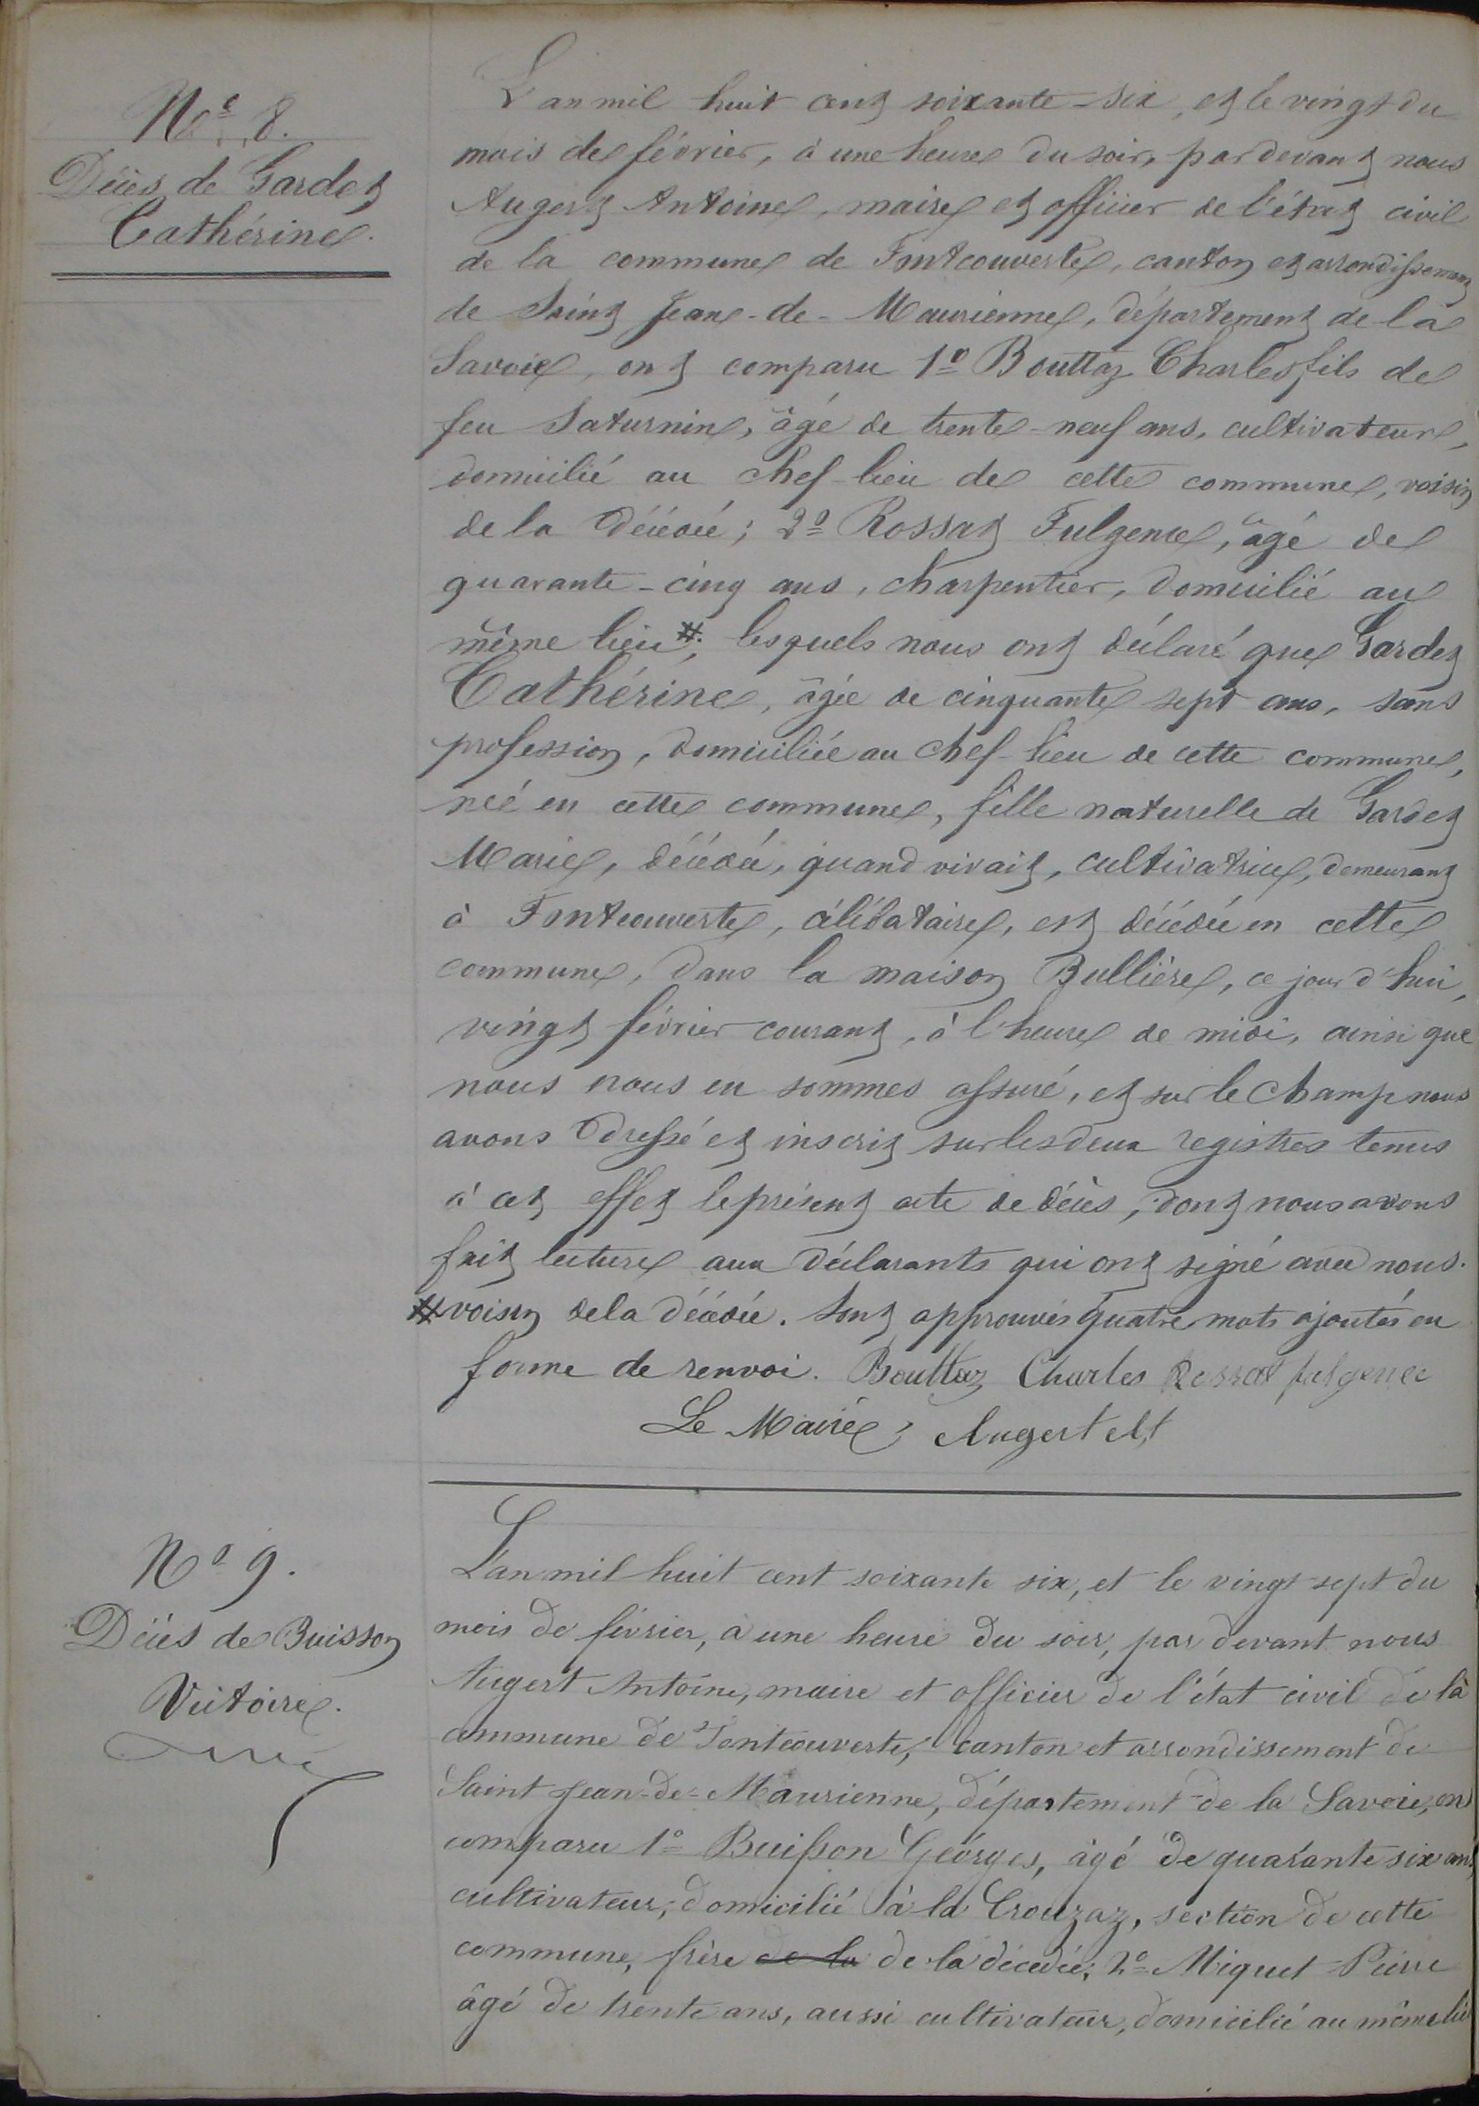 No. 8.
Décès de Gardet
Cathérine.
L'an mil huit cent soixante-six, et le vingt du
mois de février, à une heure du soir, par devant nous
Augert Antoine, maire et officier de l'état civil
de la commune de Fontcouverte, canton et arrondissement
de Saint Jean-de-Maurienne, département de la
Savoie, ont comparu 1º Bouttaz Charles, fils de
feu Saturnin, âgé de trente-neuf ans, cultivateur,
domicilié au chef-lieu de cette commune, voisin
de la décédée; 2º Rossat Fulgence, âgé de
quarante-cinq ans, charpentier, domicilié au
même lieu #, lesquels nous ont déclaré que Gardet
Cathérine, âgée de cinquante sept ans, sans
profession, domiciliée au chef-lieu de cette commune,
née en cette commune, fille naturelle de Gardet
Marie, décédée, quand vivait, cultivatrice, demeurant
à Fontcouverte, célibataire, est décédée en cette
commune, dans la maison Bullière, ce jour d'hui,
vingt février courant, à l'heure de midi, ainsi que
nous nous en sommes assuré, et sur le champ nous
avons dressé et inscrit sur les deux registres tenus
à cet effet le présent acte de décès, dont nous avons
fait lecture aux déclarants qui ont signé avec nous.
# voisin de la décédée. Sont approuvés quatre mots ajoutés en
forme de renvoi. Bouttaz Charles Rossat fulgence
Le Maire, Augert At
No 9.
Décès de Buisson
Victoire.
L'an mil huit cent soixante six, et le vingt-sept du
mois de février, à une heure du soir, par devant nous
Augert Antoine, maire et officier de l'état civil de la
commune de Fontcouverte, canton et arrondissement de
Saint Jean-de-Maurienne, département de la Savoie, ont
comparu 1º Buisson Georges, âgé de quarante six ans,
cultivateur, domicilié à la Crouzaz, section de cette
commune, frère de la de la décédée; 2º Miquet Pierre
âgé de trente ans, aussi cultivateur, domicilié au même lieu